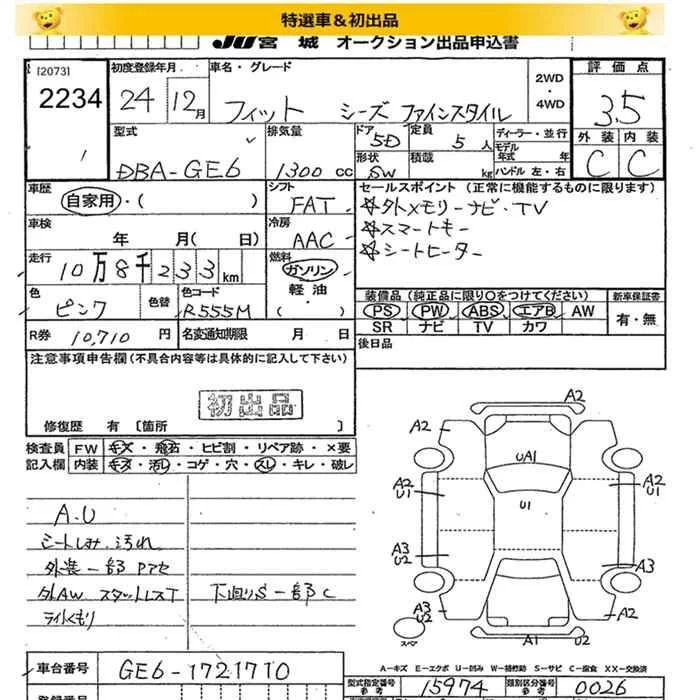 特選車＆初出品
JU宮城 オークション出品申込書
[2073]
2234
1
初度登録年月
24 12月
車名・グレード
フィット シーズ ファインスタイル
2WD・4WD
評価点
3.5
外装 内装
C C
型式
DBA-GE6
排気量
1300 cc
ドア
5D
形状
SW
定員
5人
積載
kg
ディーラー・並行
モデル年式 年
ハンドル 左・右
車歴
自家用・( )
シフト
FAT
セールスポイント (正常に機能するものに限ります)
☆外メモリーナビ・TV
☆スマートキー
☆シートヒーター
車検
年 月( 日)
冷房
AAC
走行
10万8千233km
燃料
ガソリン
軽油
色
ピンク
色替
色コード
R555M
装備品 (純正品に限り○をつけてください)
PS PW ABS エアB AW
SR ナビ TV カワ
新車保証書
有・無
R券 10,710円
名変通知期限 月 日
後日品
注意事項申告欄 (不具合内容等は具体的に記入して下さい)
初出品
修復歴 有 〔箇所 〕
検査員記入欄
FW キズ・飛石・ヒビ割・リペア跡・×要
内装 キズ・汚れ・コゲ・穴・スレ・キレ・破レ
A.U
シートしみ、汚れ
外装一部Pアセ
外AW スタットレスT
ライトくもり
下廻りS一部C
A2
A2
A2
UA1
U1
A2
U1
A2
U1
A3
U2
A3
A3
U2
A2
スペア
A1
U2
A-キズ E-エクボ U-凹み W-補修跡 S-サビ C-腐食 XX-交換済
車台番号
GE6-1721710
型式指定番号
参考
15974
類別区分番号
参考
0026
登録番号